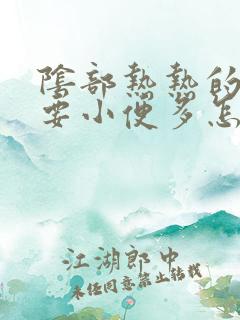 陰部熱熱的
要小便多怎
江湖郎中
未经同意禁止转载